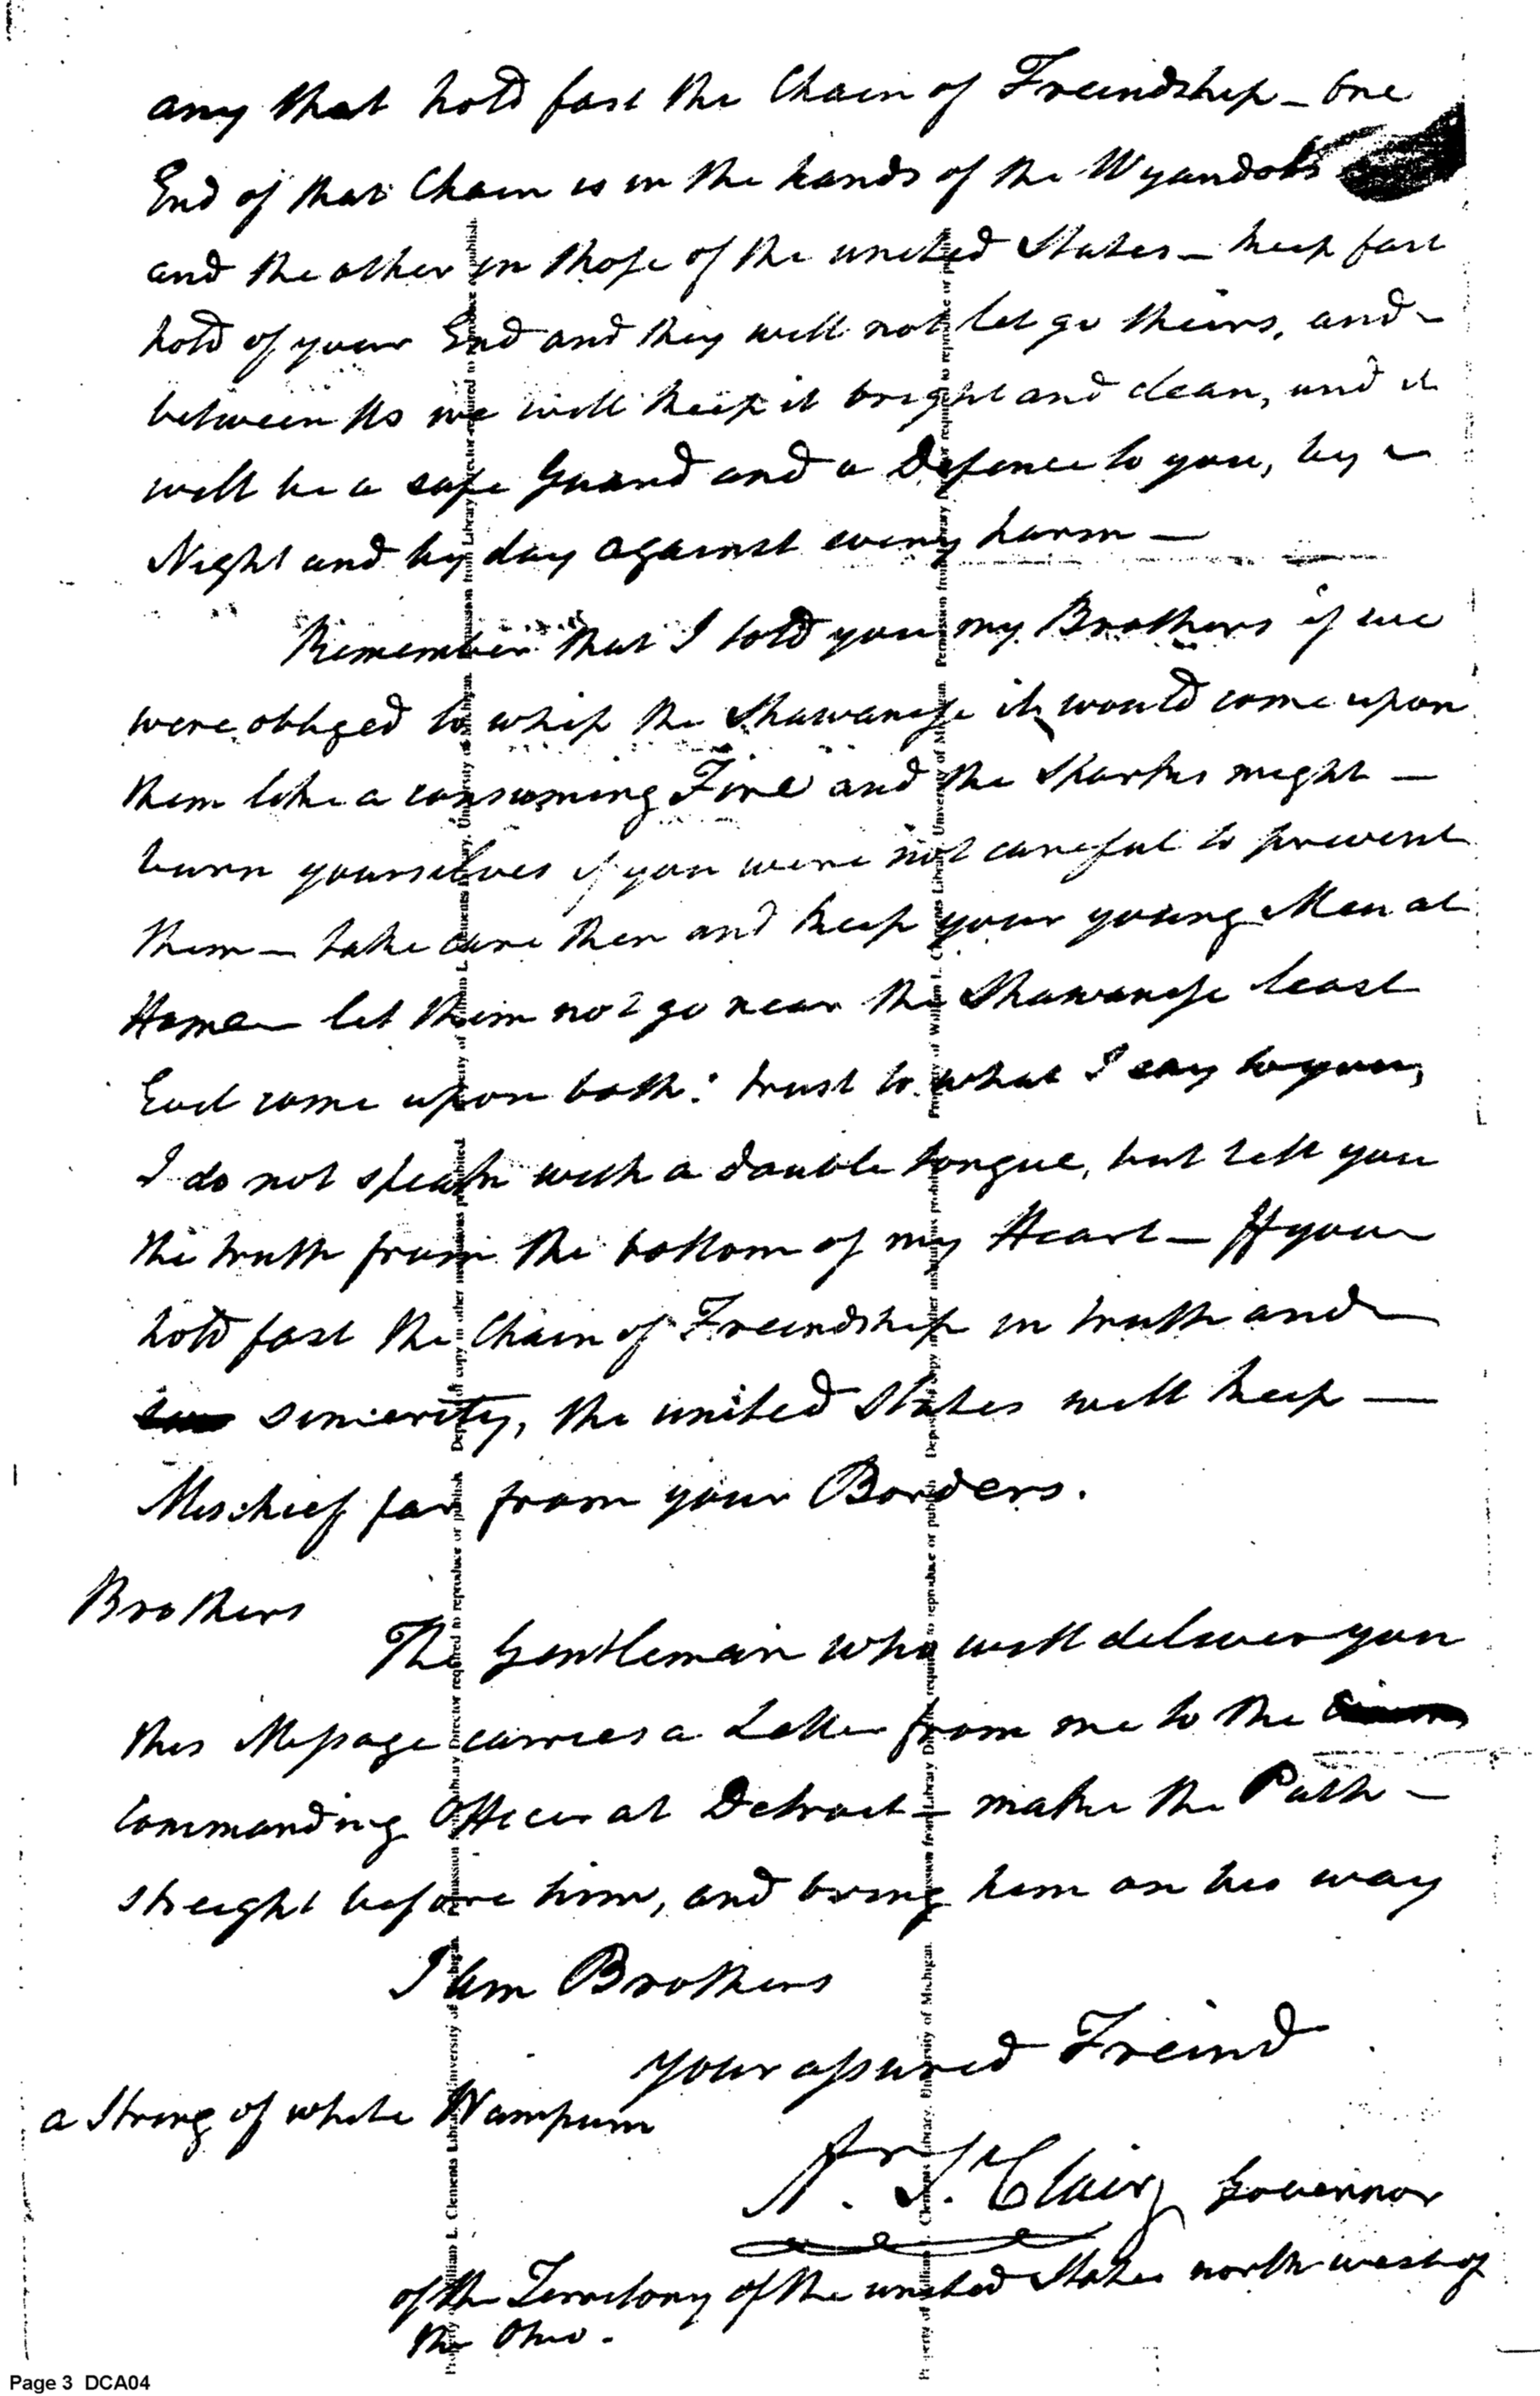 any that hold fast the Chain of Freindship – One
End of that Chain is in the hands of the Wyandots
and the other in those of the united States – keep fast
hold of your End and they will not let go theirs, and
between Us we will keep it bright and clean, and it
will be a safe Guard and a Defence to you, by
Night and by day against every harm –
Remember that I told you my Brothers if we
were obliged to whip the Shawanese it would come upon
them like a consuming Fire and the Sparks might –
burn yourselves if you were not careful to prevent
them – take care then and keep your young Men at
Home – let them not go near the Shawanese least
Evil come upon both: trust to what I say to you,
I do not speak with a double tongue, but tell you
the truth from the bottom of my Heart – If you
hold fast the Chain of Freindship in truth and
sincerity, the united States will keep –
Mischief far from your Borders.
Brothers
The Gentleman who will deliver you
this Message carries a Letter from me to the
Commanding Officer at Detroit – make the Path –
streight before him, and bring him on his way
I am Brothers
your assured Freind
a String of white Wampum
Ar. St. Clair Governor
of the Territory of the united States north west of
the Ohio.
Property of William L. Clements Library, University of Michigan. Permission from Library Director required to reproduce or publish. Deposit of copy in other institutions prohibited
Property of William L. Clements Library, University of Michigan. Permission from Library Director required to reproduce or publish. Deposit of copy in other institutions prohibited
Page 3 DCA04